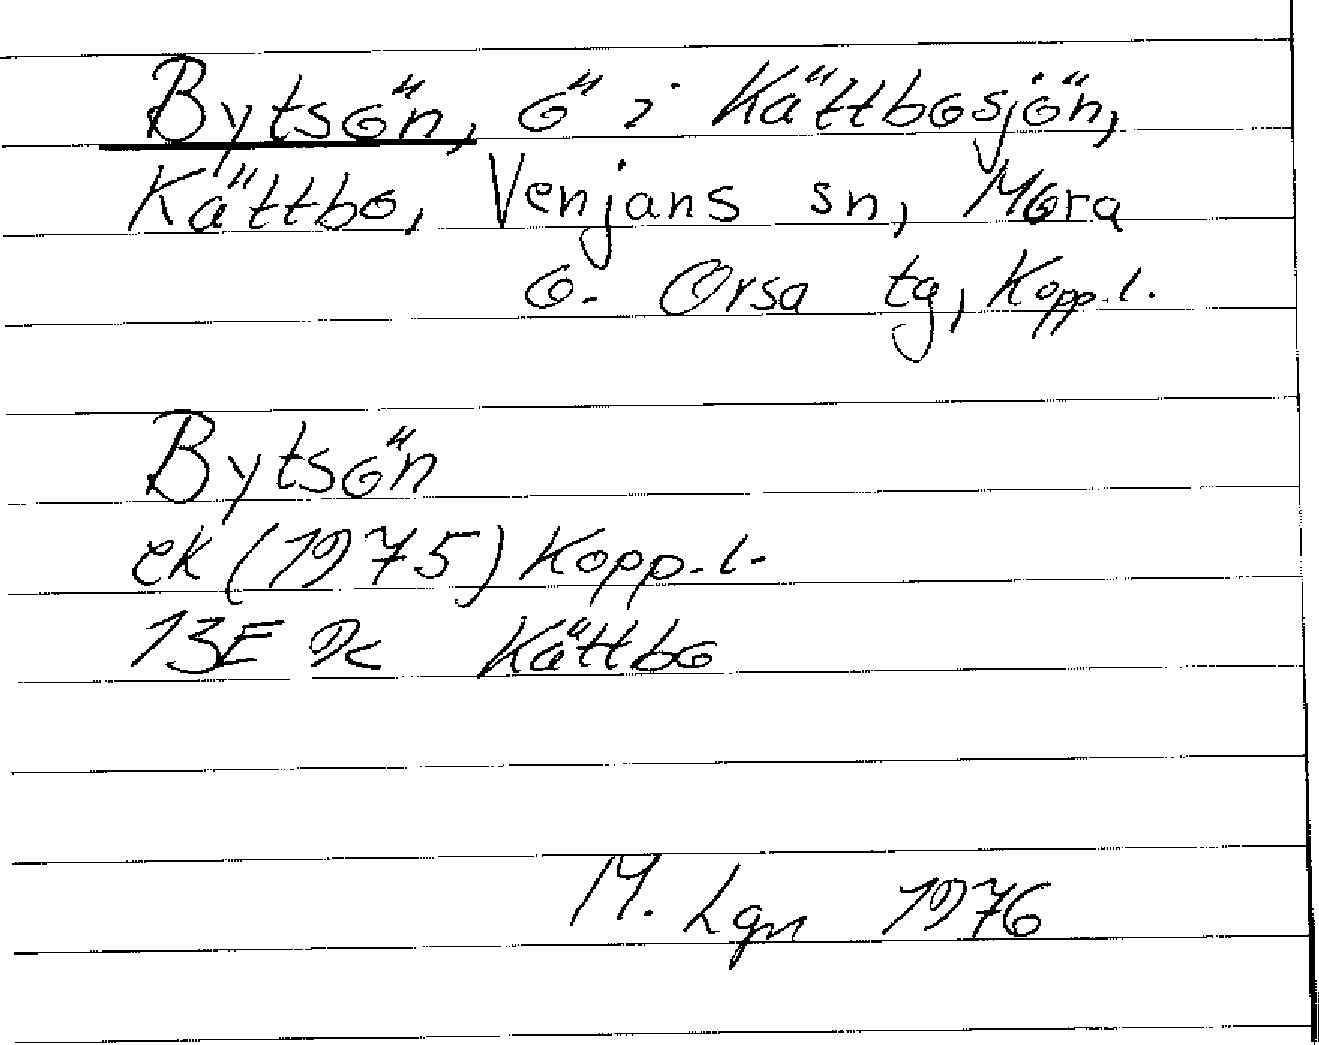 Bytsön, ö i Kättbosjön,
Kättbo, Venjans sn, Mora
o. Orsa tg, Kopp. l.
Bytsön
ek (1975) Kopp. l.
13E 9c Kättbo
M. Lgn 1976